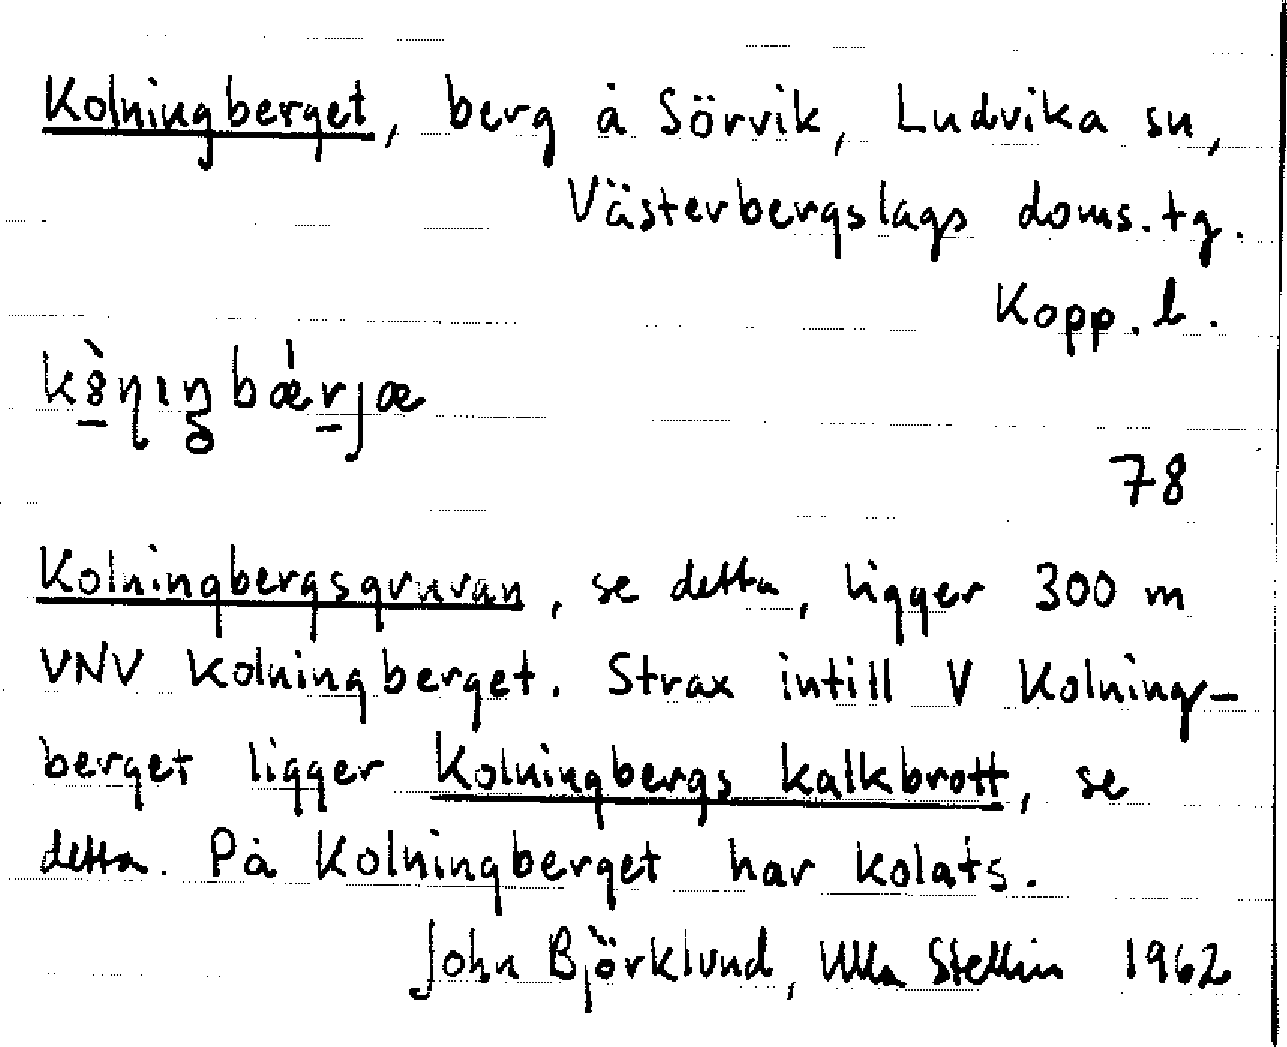 Kolningberget, berg å Sörvik, Ludvika sn,
Västerbergslags doms.tg.
Kopp.l.
78
Kolningbergsgruvan, se detta, ligger 300 m
VNV Kolningberget. Strax intill V Kolning-
berget ligger Kolningbergs kalkbrott, se
detta. På Kolningberget har kolats.
John Björklund, Ulla Stellin 1962